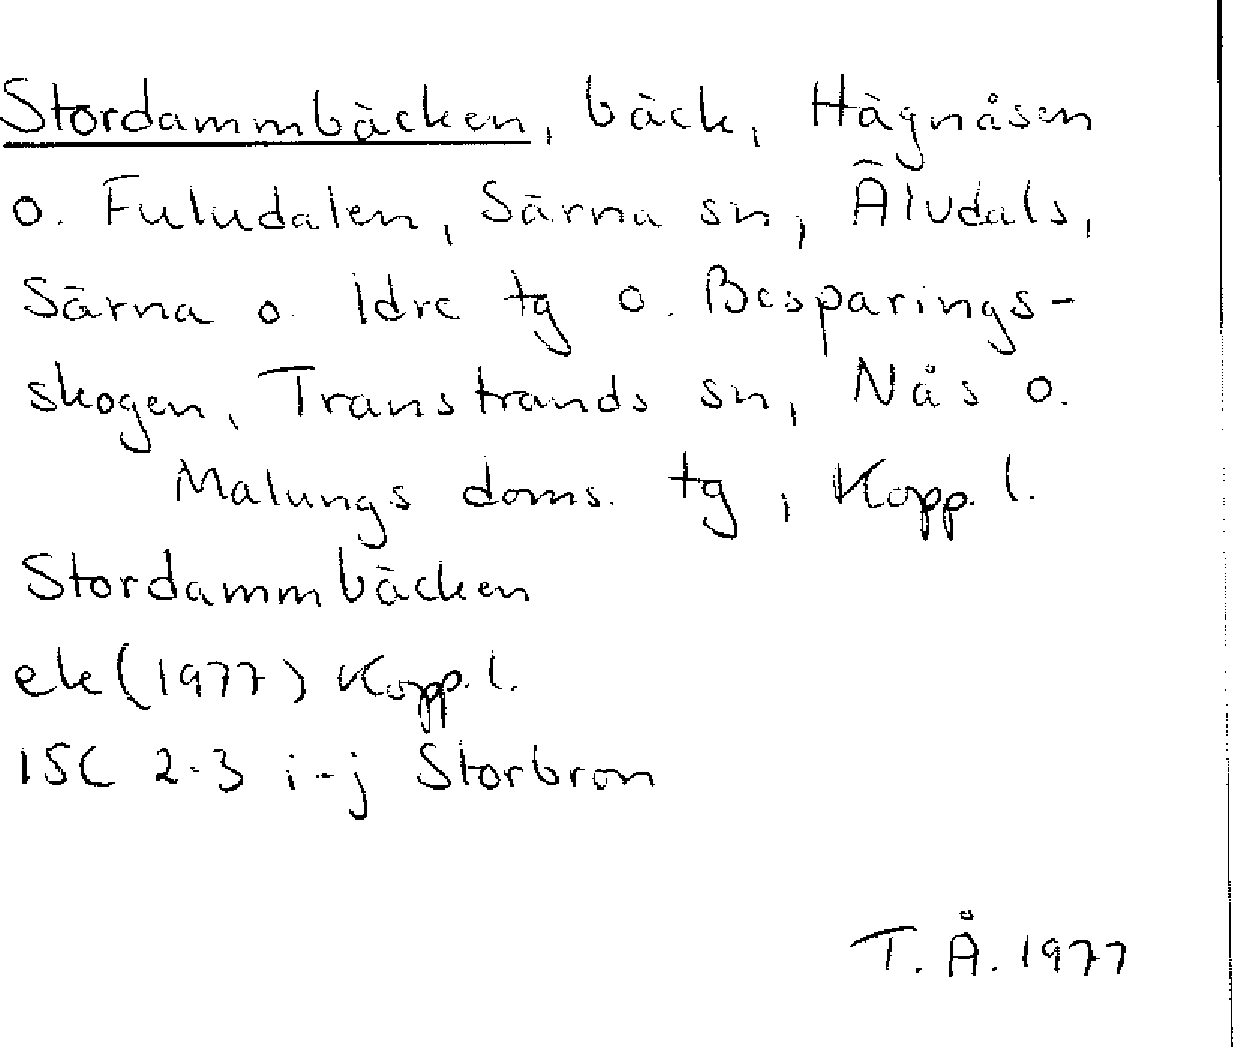 Stordammbäcken, bäck, Hägnåsen
o. Fuludalen, Särna sn, Älvdals,
Särna o. Idre tg o. Besparings-
skogen, Transtrands sn, Nås o.
Malungs doms. tg, Kopp. l.
Stordammbäcken
ek (1977) Kopp. l.
15C 2-3 i-j Storbron
T. Å. 1977